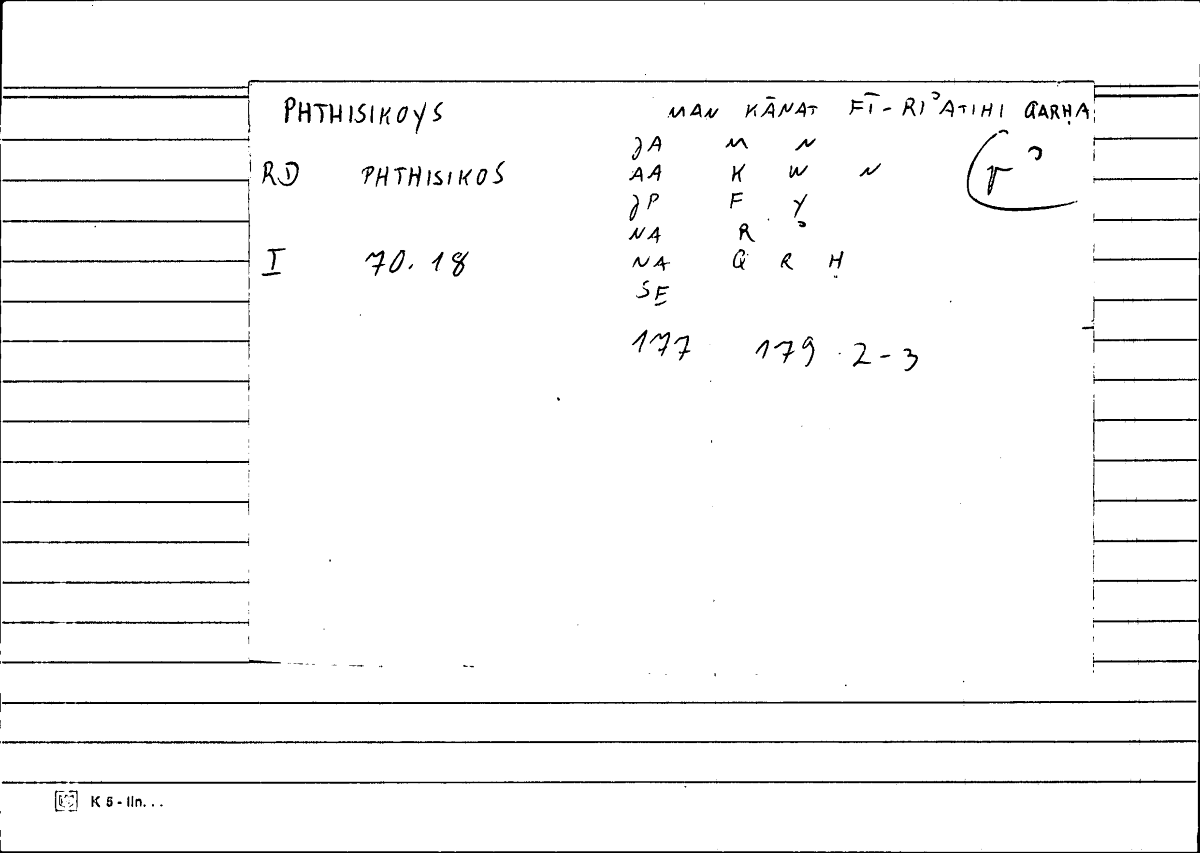 PHTHISIKOYS MAN KĀNAT FĪ-RIʾATIHI QARḤA
JA M N
RD PHTHISIKOS AA K W N rʾ
JP F Y
NA R ʾ
I 70.18 NA Q R Ḥ
SE
177 179.2-3
K 5 - lin...